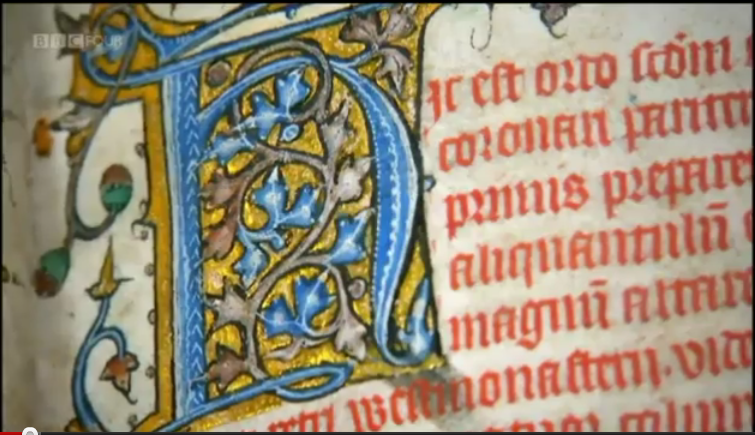 BBC FOUR
Hic est ordo scdm
coronari
primis prepare
aliquantulū
magnū altar
westmonasterij. vid